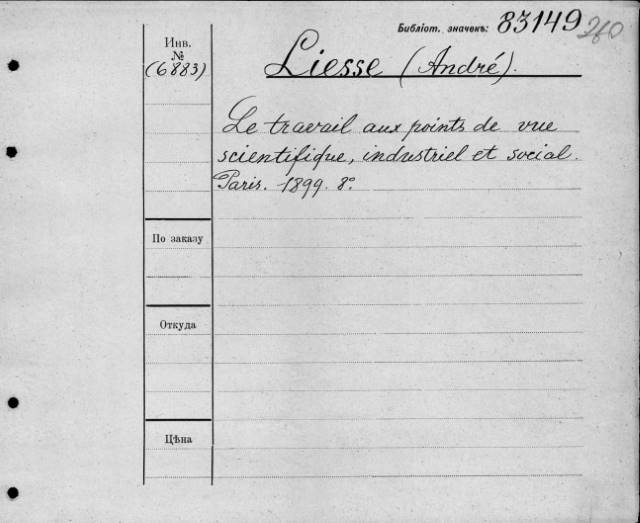 Библіот. значекъ: 83149 260
Инв.
№
(6883)
Liesse (André).
Le travail aux points de vue
scientifique, industriel et social.
Paris. 1899. 8º
По заказу
Откуда
Цѣна